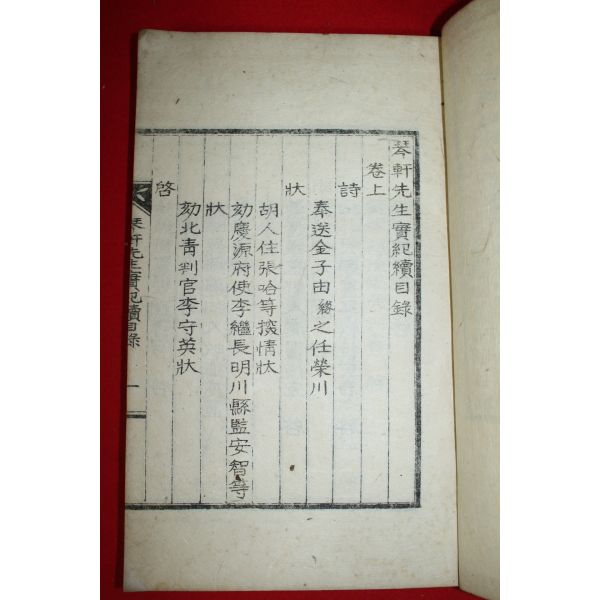 琴軒先生實紀續目錄
卷上
詩
奉送金子由緣之任榮川
狀
胡人住張哈等探情狀
劾慶源府使李繼長明川縣監安智等
狀
劾北靑判官李守英狀
啓
琴軒先生實紀續目錄
一